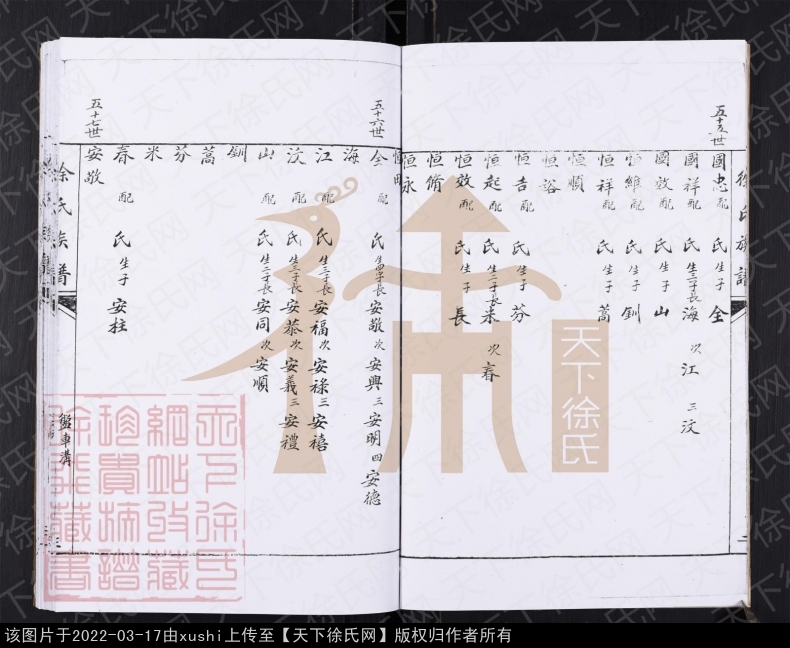 徐氏族譜
五十五世
國忠 配 氏 生子 全
國祥 配 氏 生三子長 海 次 江 三 汶
國效 配 氏 生子 山
恒維 配 氏 生子 釧
恒祥 配 氏 生子 蒿
恒順
恒谘
恒吉 配 氏 生子 芬
恒起 配 氏 生二子長 米 次 春
恒效 配 氏 生子 長
恒脩
恒永
五十六世
全 配 氏 生四子長 安敬 次 安興 三 安明 四 安德
海
江 配 氏 生三子長 安福 次 安祿 三 安禧
汶 配 氏 生三子長 安恭 次 安義 三 安禮
山 配 氏 生二子長 安同 次 安順
釧
蒿
芬
米
春 配 氏 生子 安柱
五十七世
安敬
徐氏族譜
盤車溝
天下徐氏
天下徐氏网
天下徐氏
網站收藏
珍貴摘譜
徐氏藏書
该图片于2022-03-17由xushi上传至【天下徐氏网】版权归作者所有